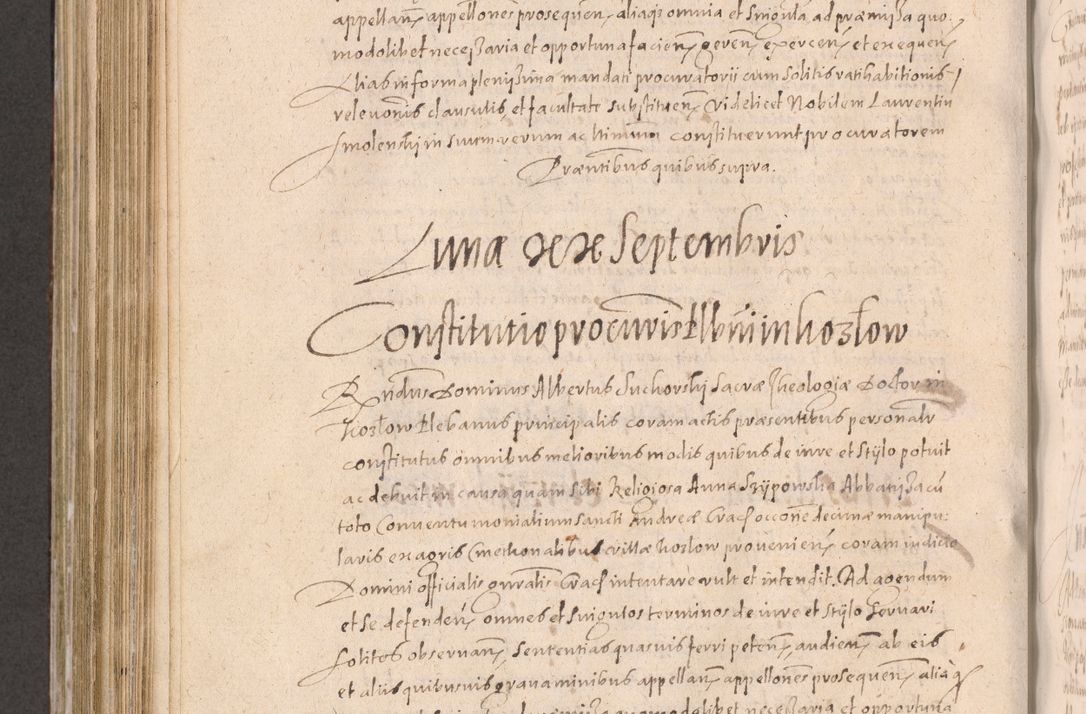 appellan, appellones prosequen, aliaqs omnia et singula, ad præmissa quo
modolibet necessaria et opportuna facien, geren, exercen, et exequen,
Alias in forma plenissima mandati procuratorii cum solitis ratihabitionis
relevonis clausulis, et facultate substituen, videlicet Nobilem Laurentiu
Smolenski in suum verum ac ltimum constituerunt procuratorem
Præntibus quibus supra.
Lunæ Septembris
Constitutio procuris Plbni in Kozlow
Rndus Dominus Albertus Suchorski Sacræ Theologiæ Doctor in
Kozlow Plebanus principalis coram actis præsentibus personalr
constitutus omnibus melioribus modis quibus de iure et stylo potuit
ac debuit in causa quam sibi Religiosa Anna Szypowska Abbatissa cu
toto Conventu monialium Sancti Andreæ Crac occone decimæ manipu
laris ex agris Cmethonalibus villæ Kozlow provenien, coram iudicio
Domini officialis gnralis Crac intentare vult et intendit. Ad agendum
et se defenden, omnes et singulos terminos de iure et stylo servari
solitos observan, sententias quasuis ferri peten, audien, ab eis
et aliis quibusuis gravaminibus appellan, appellones prosequen, aliaq
quomodolibet necessaria et opportuna